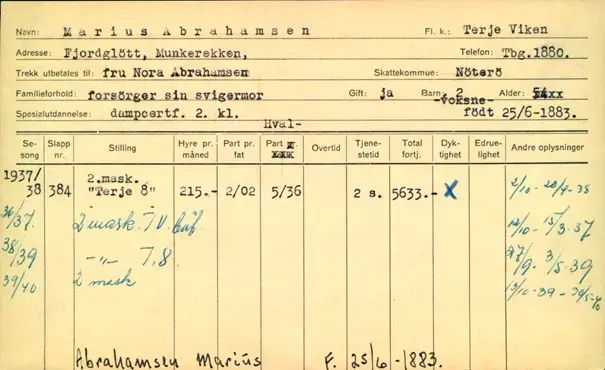 Navn: Marius Abrahamsen Fl. k.: Terje Viken
Adresse: Fjordglött, Munkerekken, Telefon: Tbg.1880.
Trekk utbetales til: fru Nora Abrahamsen Skattekommue: Nöterö
Familieforhold: forsörger sin svigermor Gift: ja Barn: 2 Alder: 54xx
-voksne-
Spesialutdannelse: dampcertf. 2. kl. födt 25/6-1883.
Hval-
Se-song Slapp nr. Stilling Hyre pr. måned Part pr. fat Part Overtid Tjene-stetid Total fortj. Dyk-tighet Edrue-lighet Andre oplysninger
1937/ 2.mask.
38 384 "Terje 8" 215.- 2/02 5/36 2 s. 5633.- X 2/10-20/4-38
36/37. 2 mask. T.V. 12/10- 15/3-37
38/39 -"- T.8. 27/9- 3/5-39
39/40 2 mask 13/10-39 - 30/5-40
Abrahamsen Marius F. 25/6-1883.